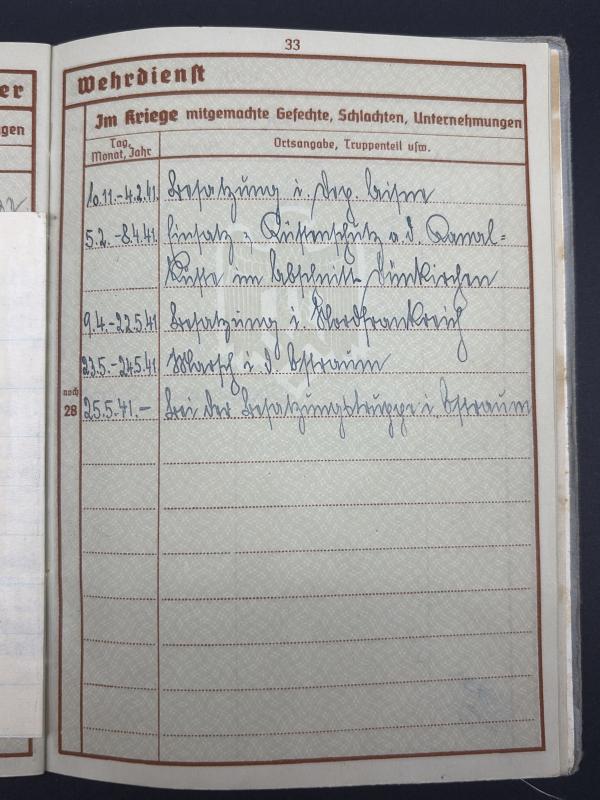 33
er
Wehrdienst
gen
Im Kriege mitgemachte Gefechte, Schlachten, Unternehmungen
Tag, Monat, Jahr
Ortsangabe, Truppenteil usw.
10.11.-4.2.41. Besatzung i. Dep. Aisne
5.2.-8.4.41. Einsatz z. Küstenschutz a. d. Kanal-
Küste im Abschnitt Dünkirchen
9.4.-22.5.41 Besatzung i. Nordfrankreich
23.5.-24.5.41 Marsch i. d. Ostraum
noch
28
25.5.41.- Bei der Besatzungstruppe i. Ostraum